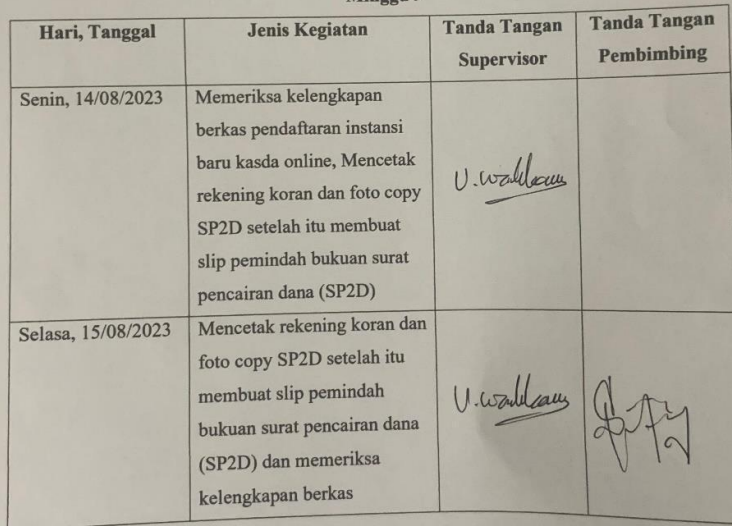 Hari, Tanggal
Jenis Kegiatan
Tanda Tangan
Supervisor
Tanda Tangan
Pembimbing
Senin, 14/08/2023
Memeriksa kelengkapan
berkas pendaftaran instansi
baru kasda online, Mencetak
rekening koran dan foto copy
SP2D setelah itu membuat
slip pemindah bukuan surat
pencairan dana (SP2D)
Selasa, 15/08/2023
Mencetak rekening koran dan
foto copy SP2D setelah itu
membuat slip pemindah
bukuan surat pencairan dana
(SP2D) dan memeriksa
kelengkapan berkas